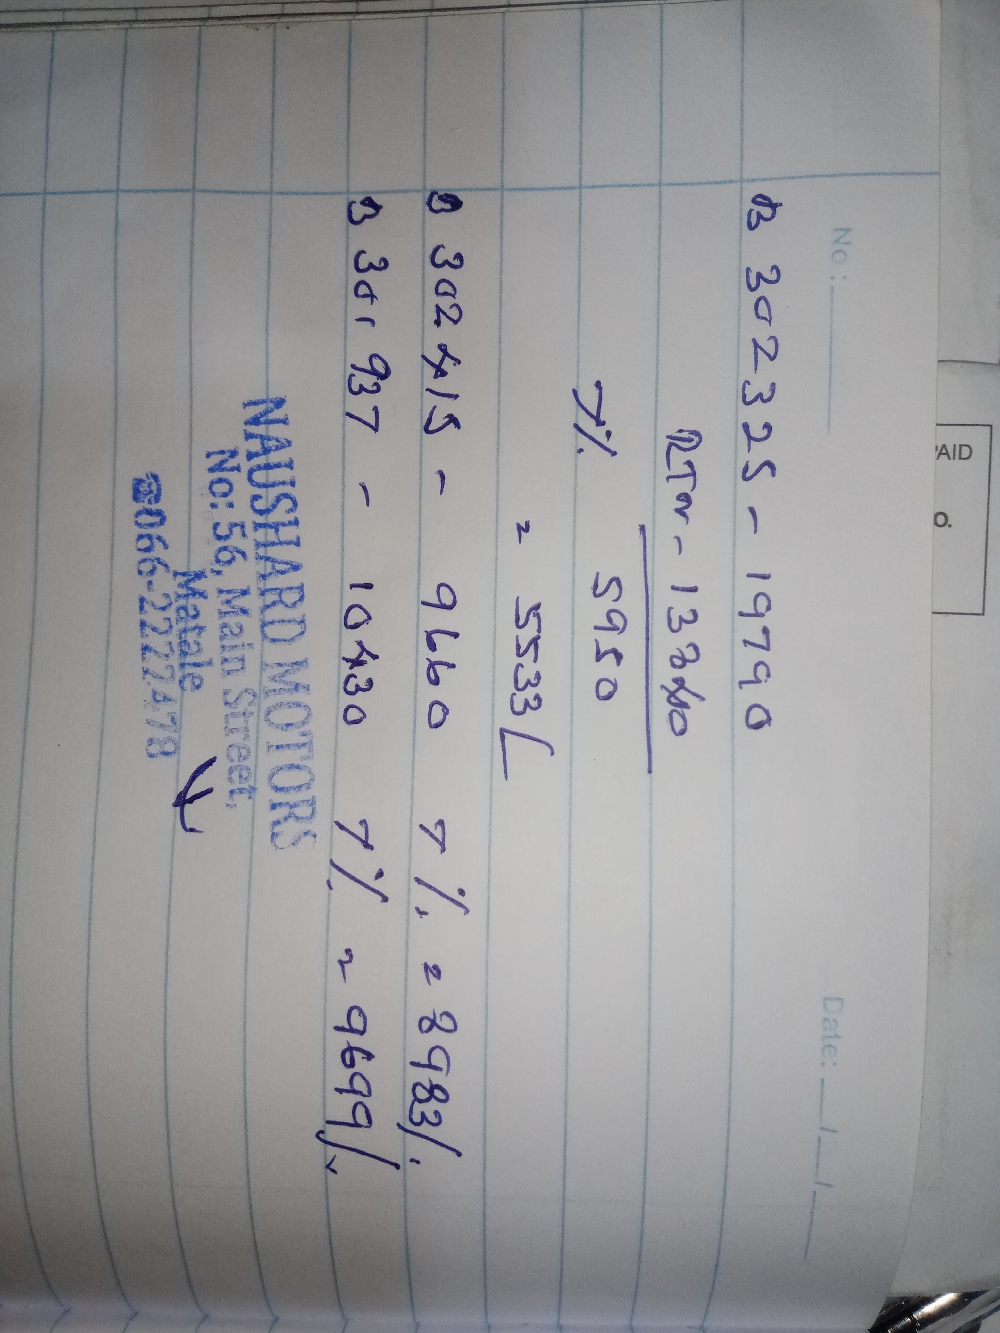 No: Date: / /
B 302325 - 19790
RTN - 13840
5950
7%
= 5533/
B 302415 - 9660 7% = 8983/.
B 301937 - 10430 7% = 9699/.
NAUSHARD MOTORS
No: 56, Main Street,
Matale
☎066-2222478
PAID
O.